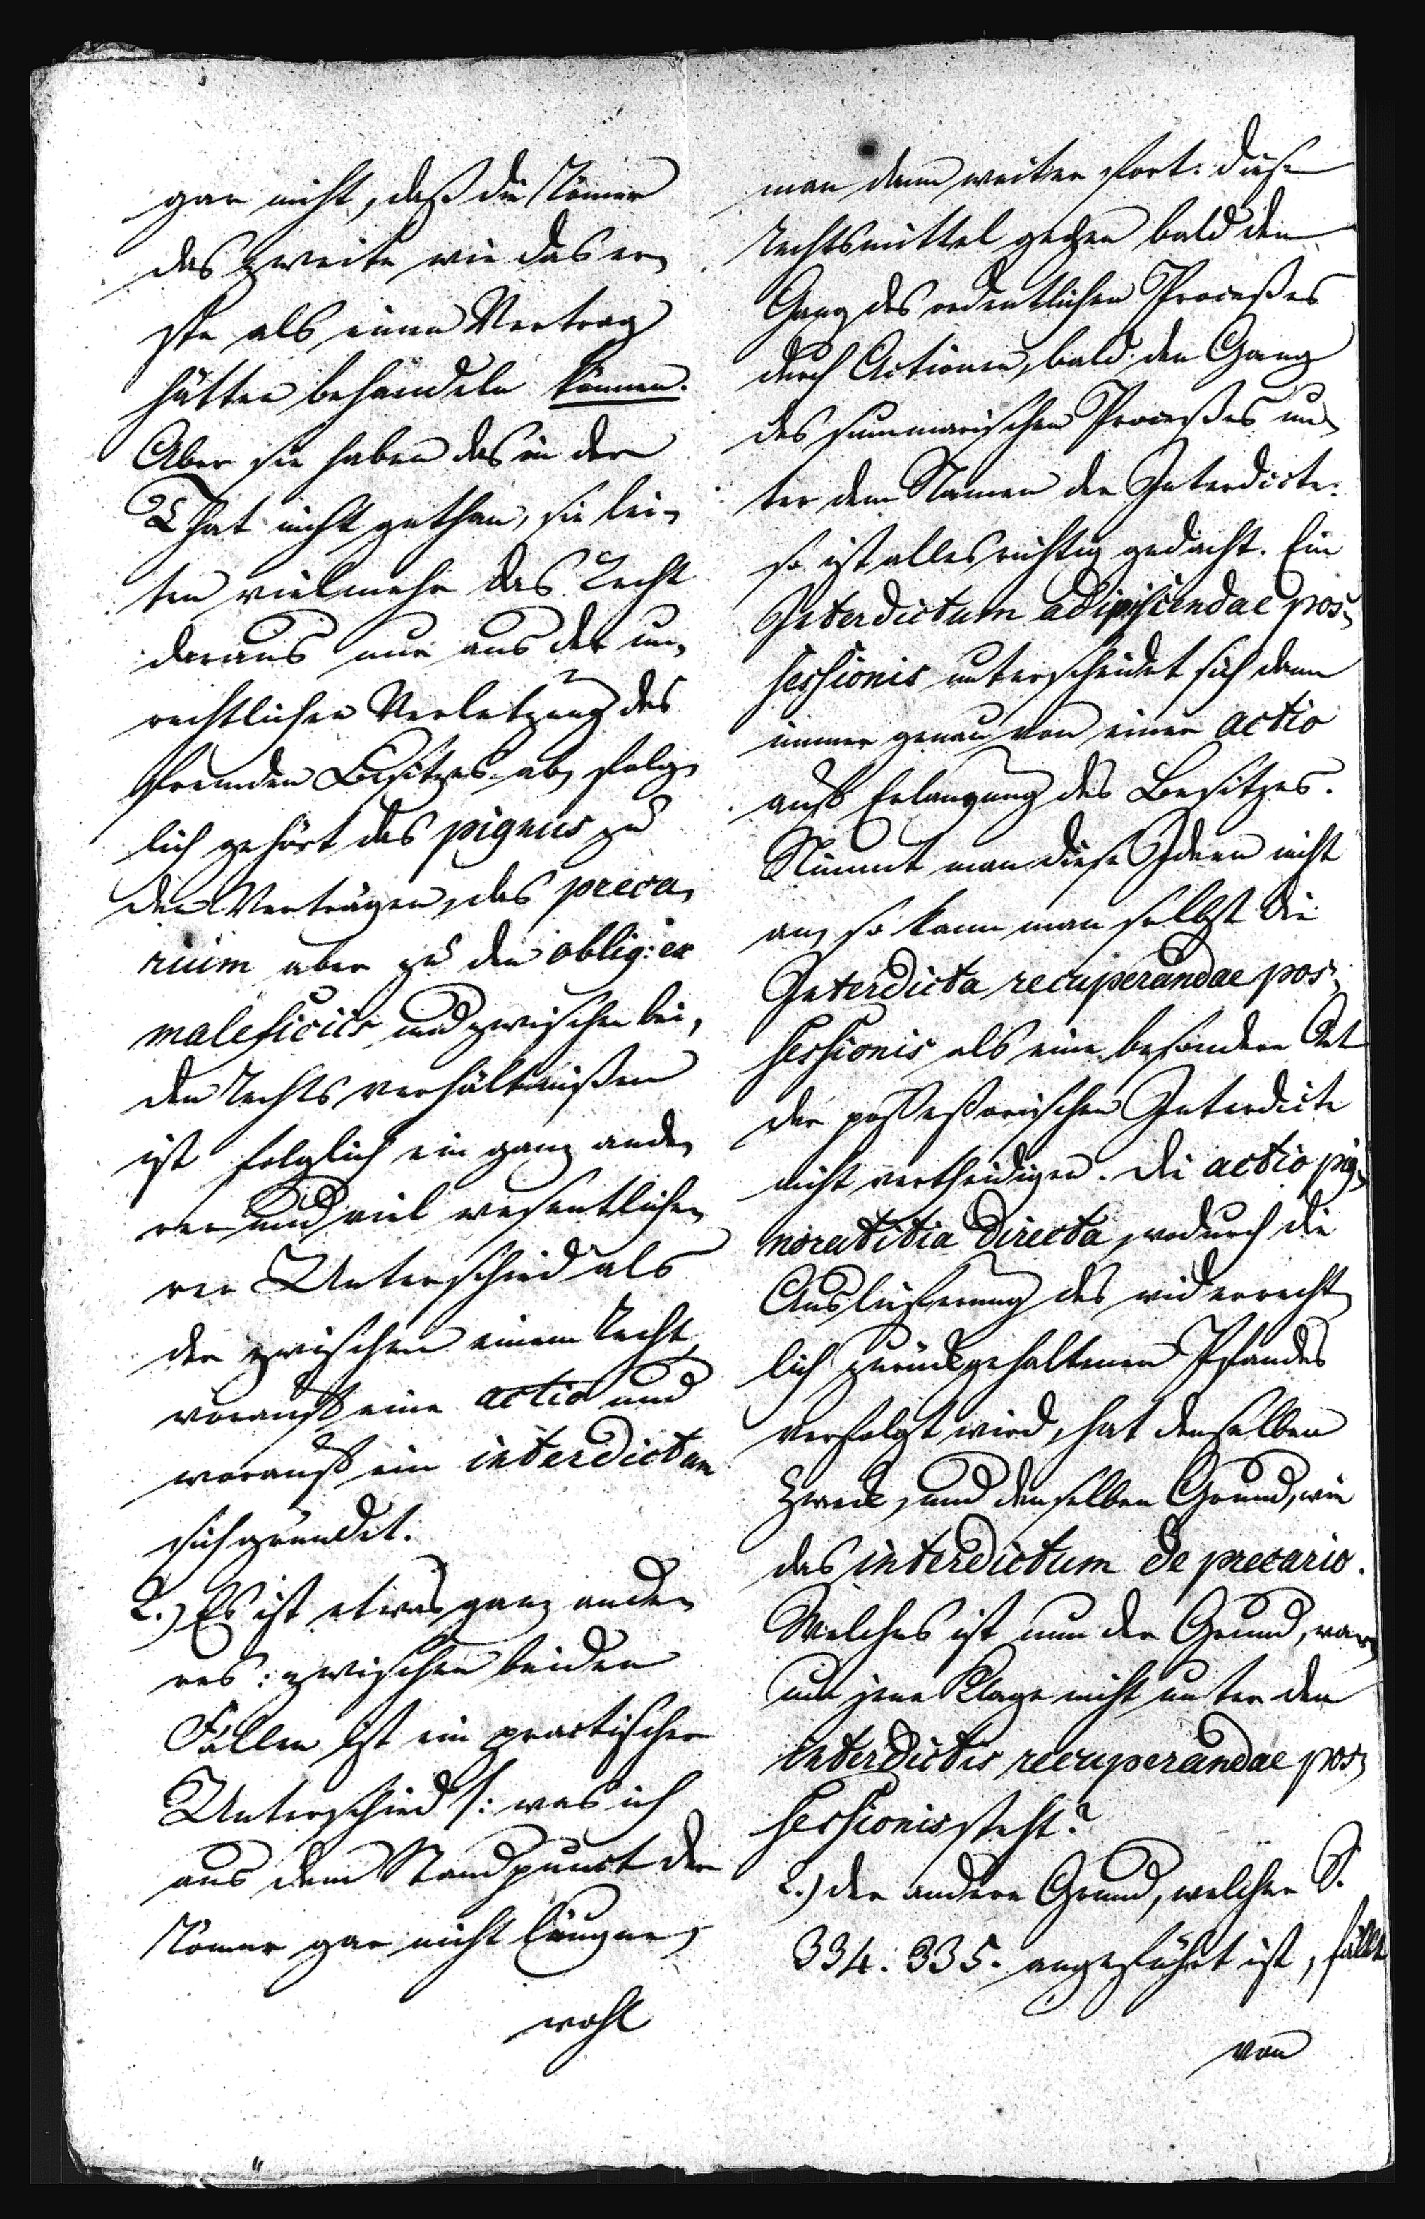 gar nicht, daß die Römer
das zweite wie das er-
ste als einen Vertrag
hätten behandeln können.
Aber sie haben das in der
That nicht gethan, sie lei-
ten vielmehr das Recht
daraus nur aus der un-
rechtlichen Verletzung des
fremden Besitzes ab, folg-
lich gehört das pignus zu
den Verträgen, das preca-
rium aber zu den oblig: ex
maleficiis und zwischen bei-
den Rechtsverhältnißen
ist folglich ein ganz ande-
rer und viel wesentliche-
rer Unterschied als
der zwischen einem Recht,
worauf eine actio und
worauf ein interdictum
sich gründet.
2.) Es ist etwas ganz ande-
res: zwischen beiden
Fällen ist ein practischer
Unterschied /: was ich
aus dem Standpunct der
Römer gar nicht läugne,
wohl
man denn weiter fort: diese
Rechtsmittel gehen bald den
Gang des ordentlichen Proceßes
durch Actionen, bald den Gang
des summarischen Proceßes un-
ter dem Namen der Interdicte:
so ist alles richtig gedacht. Ein
Interdictum adipiscendae pos-
sessionis unterscheidet sich dann
immer genau von einer actio
auf Erlangung des Besitzes.
Nimmt man diese Ideen nicht
an, so kann man selbst die
Interdicta recuperandae pos-
sessionis als eine besondere Art
der possessorischen Interdicte
nicht vertheidigen. Die actio pig-
noratitia directa, wodurch die
Auslieferung des widerrecht-
lich zurückgehaltenen Pfandes
verfolgt wird, hat denselben
Zweck, und denselben Grund, wie
das interdictum de precario.
Welches ist nun der Grund, war-
um jene Klage nicht unter den
interdictis recuperandae pos-
sessionis steht?
2.) der andere Grund, welcher S.
334. 335. angeführt ist, fällt
von